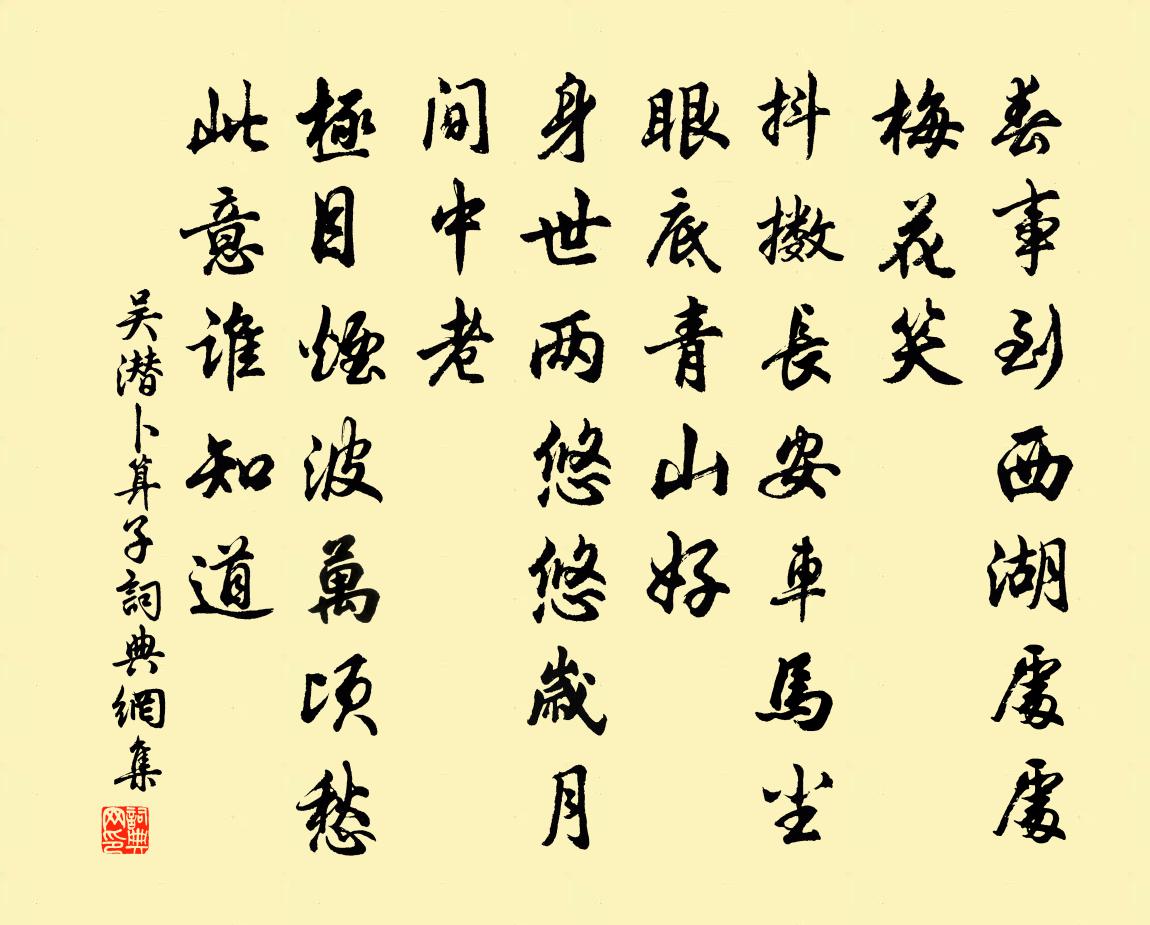 春事到西湖處處
梅花笑
抖擻長安車馬尘
眼底青山好
身世两悠悠歲月
间中老
極目煙波萬頃愁
此意谁知道
吴潜卜算子詞典網集
詞典网印